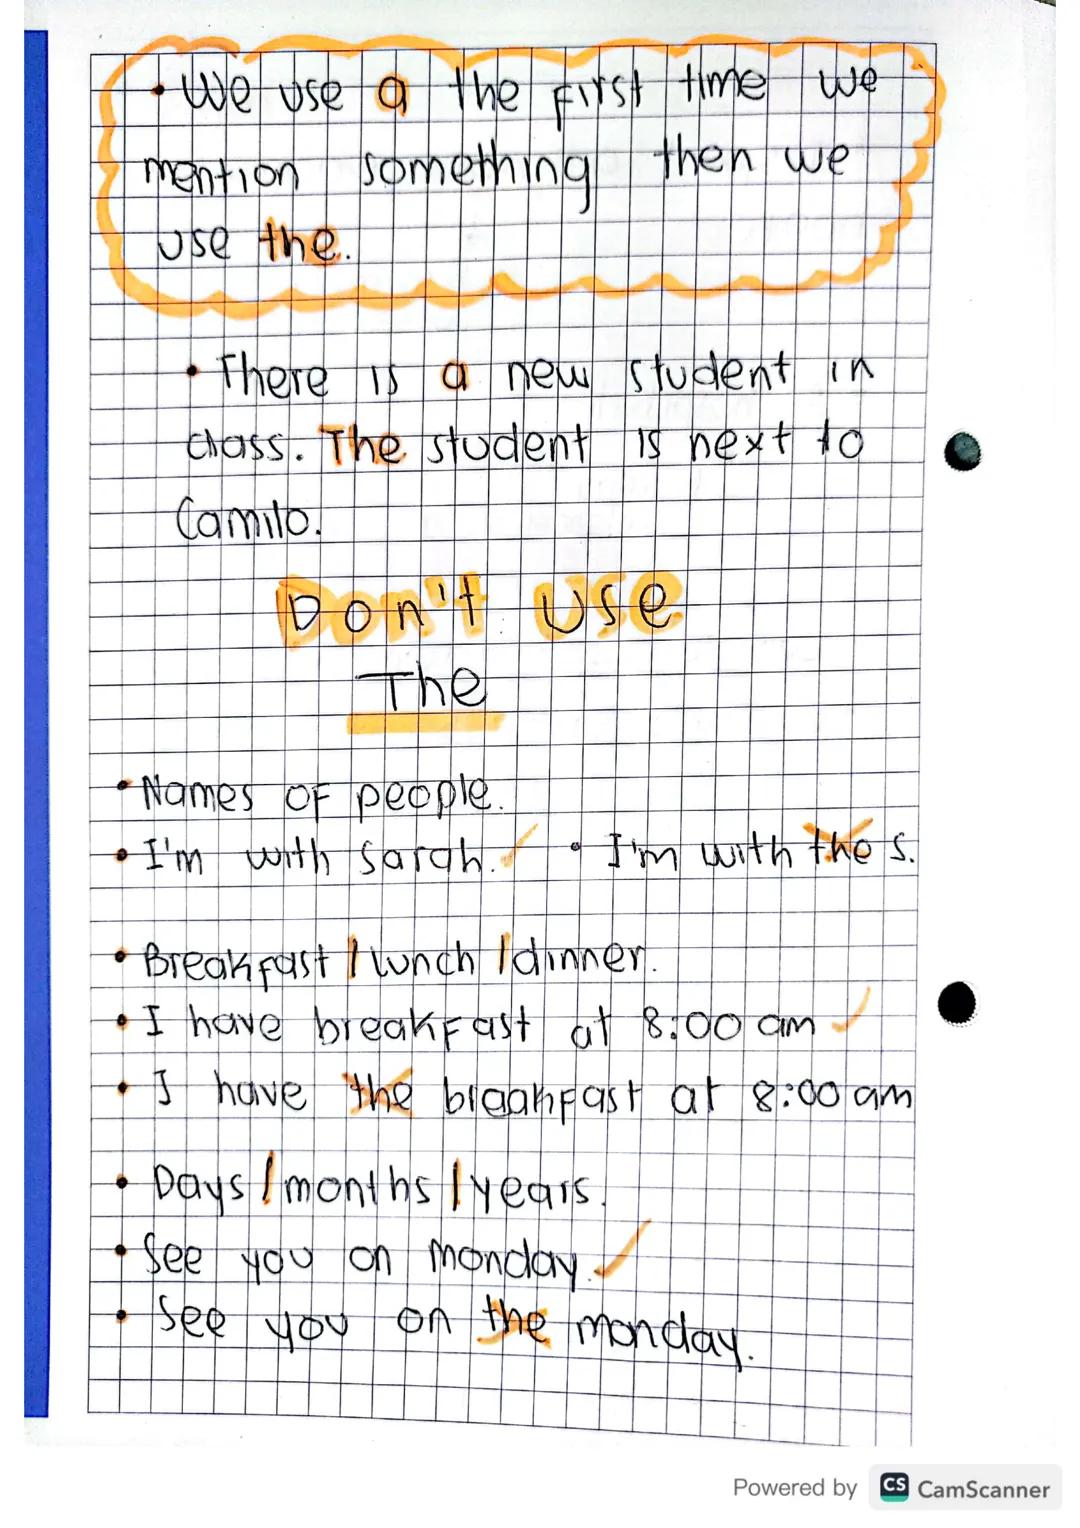 • We use a the first time we
mention something then we
use the.
• There is a new student in
class. The student is next to
Camilo.
Don't use
The
• Names of people.
• I'm with Sarah. ✓ • I'm with the s.
• Breakfast / lunch / dinner.
• I have breakfast at 8:00 am ✓
• I have the breakfast at 8:00 am
• Days / months / years.
• See you on monday. ✓
• See you on the monday.
Powered by CS CamScanner